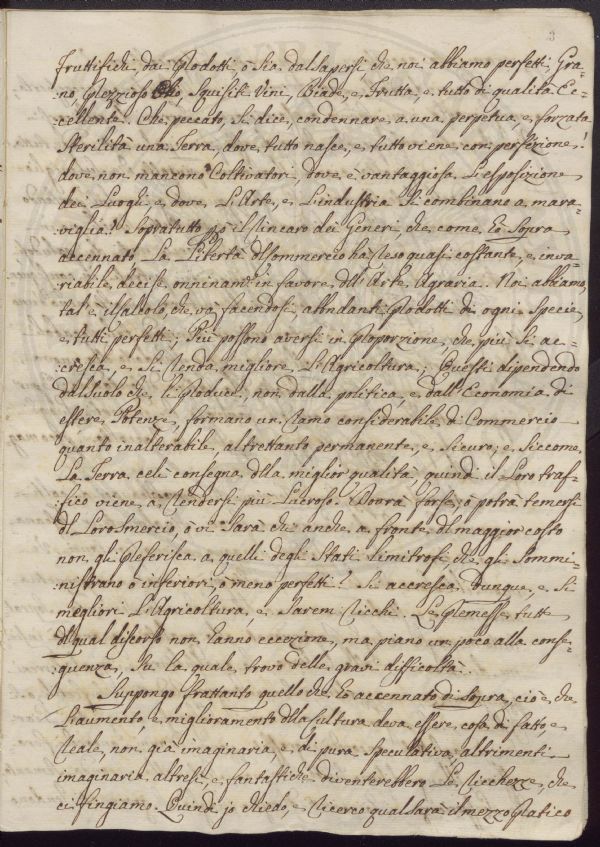 3
fruttifichi dai Prodotti, ò sia dal sapersi, che noi abbiamo perfetti Gra=
:no, Prezzioso Oglio, Squisiti Vini, Biade, e Frutta, e tutto di qualità Ec=
:cellente. Che peccato, si dice, condennare a una perpetua, e forzata
Sterilità una Terra, dove tutto nasce, e tutto viene con perfezione!
dove non mancono Coltivatori, dove è vantaggiosa L'esposizione
dei Luoghi, e dove L'Arte, e L'industria si combinano a mara=
:viglia! Sopratutto poi il rincaro dei Generi che come hò Sopra
accennato La Libertà del Commercio ha reso quasi costante, e inva=
:riabile, decise onninam.te in favore dell'Arte Agraria. Noi abbiamo,
tal' è il calcolo, che và facendosi, abbondanti Prodotti di ogni Spezie,
e tutti perfetti; Più possono aversi in Proporzione, che più si ac=
:cresca, e si renda migliore L'Agricoltura; Questi dipendendo
dal Suolo che li Produce, non dalla politica, e dall'Economia di
estere Potenze, formano un ramo considerabile di Commercio
quanto inalterabile, altrettanto permanente, e Sicuro; e Siccome
La Terra celi consegna della miglior qualità, quindi il Loro traf=
fico viene a rendersi più Lucroso. Dovrà forse, ò potrà temersi
del Loro Smercio, ò vi Sarà chi anche a fronte del maggior costo
non gli Preferisca a quelli degli Stati limitrofi, che gli Sommi=
:nistrano ò inferiori, ò meno perfetti? Si accresca dunque, e Si
megliori L'Agricoltura, e Sarem ricchi. Le Premesse tutte
del qual discorso non hanno eccezione, ma piano un poco alla conse=
:guenza, Su la quale trovo delle gravi difficoltà.
Suppongo frattanto quello che hò accennato di Sopra, cioè che
L'aumento, e miglioramento della Cultura deva essere cosa di fatto, e
reale, non già imaginaria, e di pura Speculativa, altrimenti
imaginarie altresì, e fantastiche diventerebbero Le ricchezze, che
ci fingiamo. Quindi jo chiedo, e ricerco qual sarà il mezzo Pratico